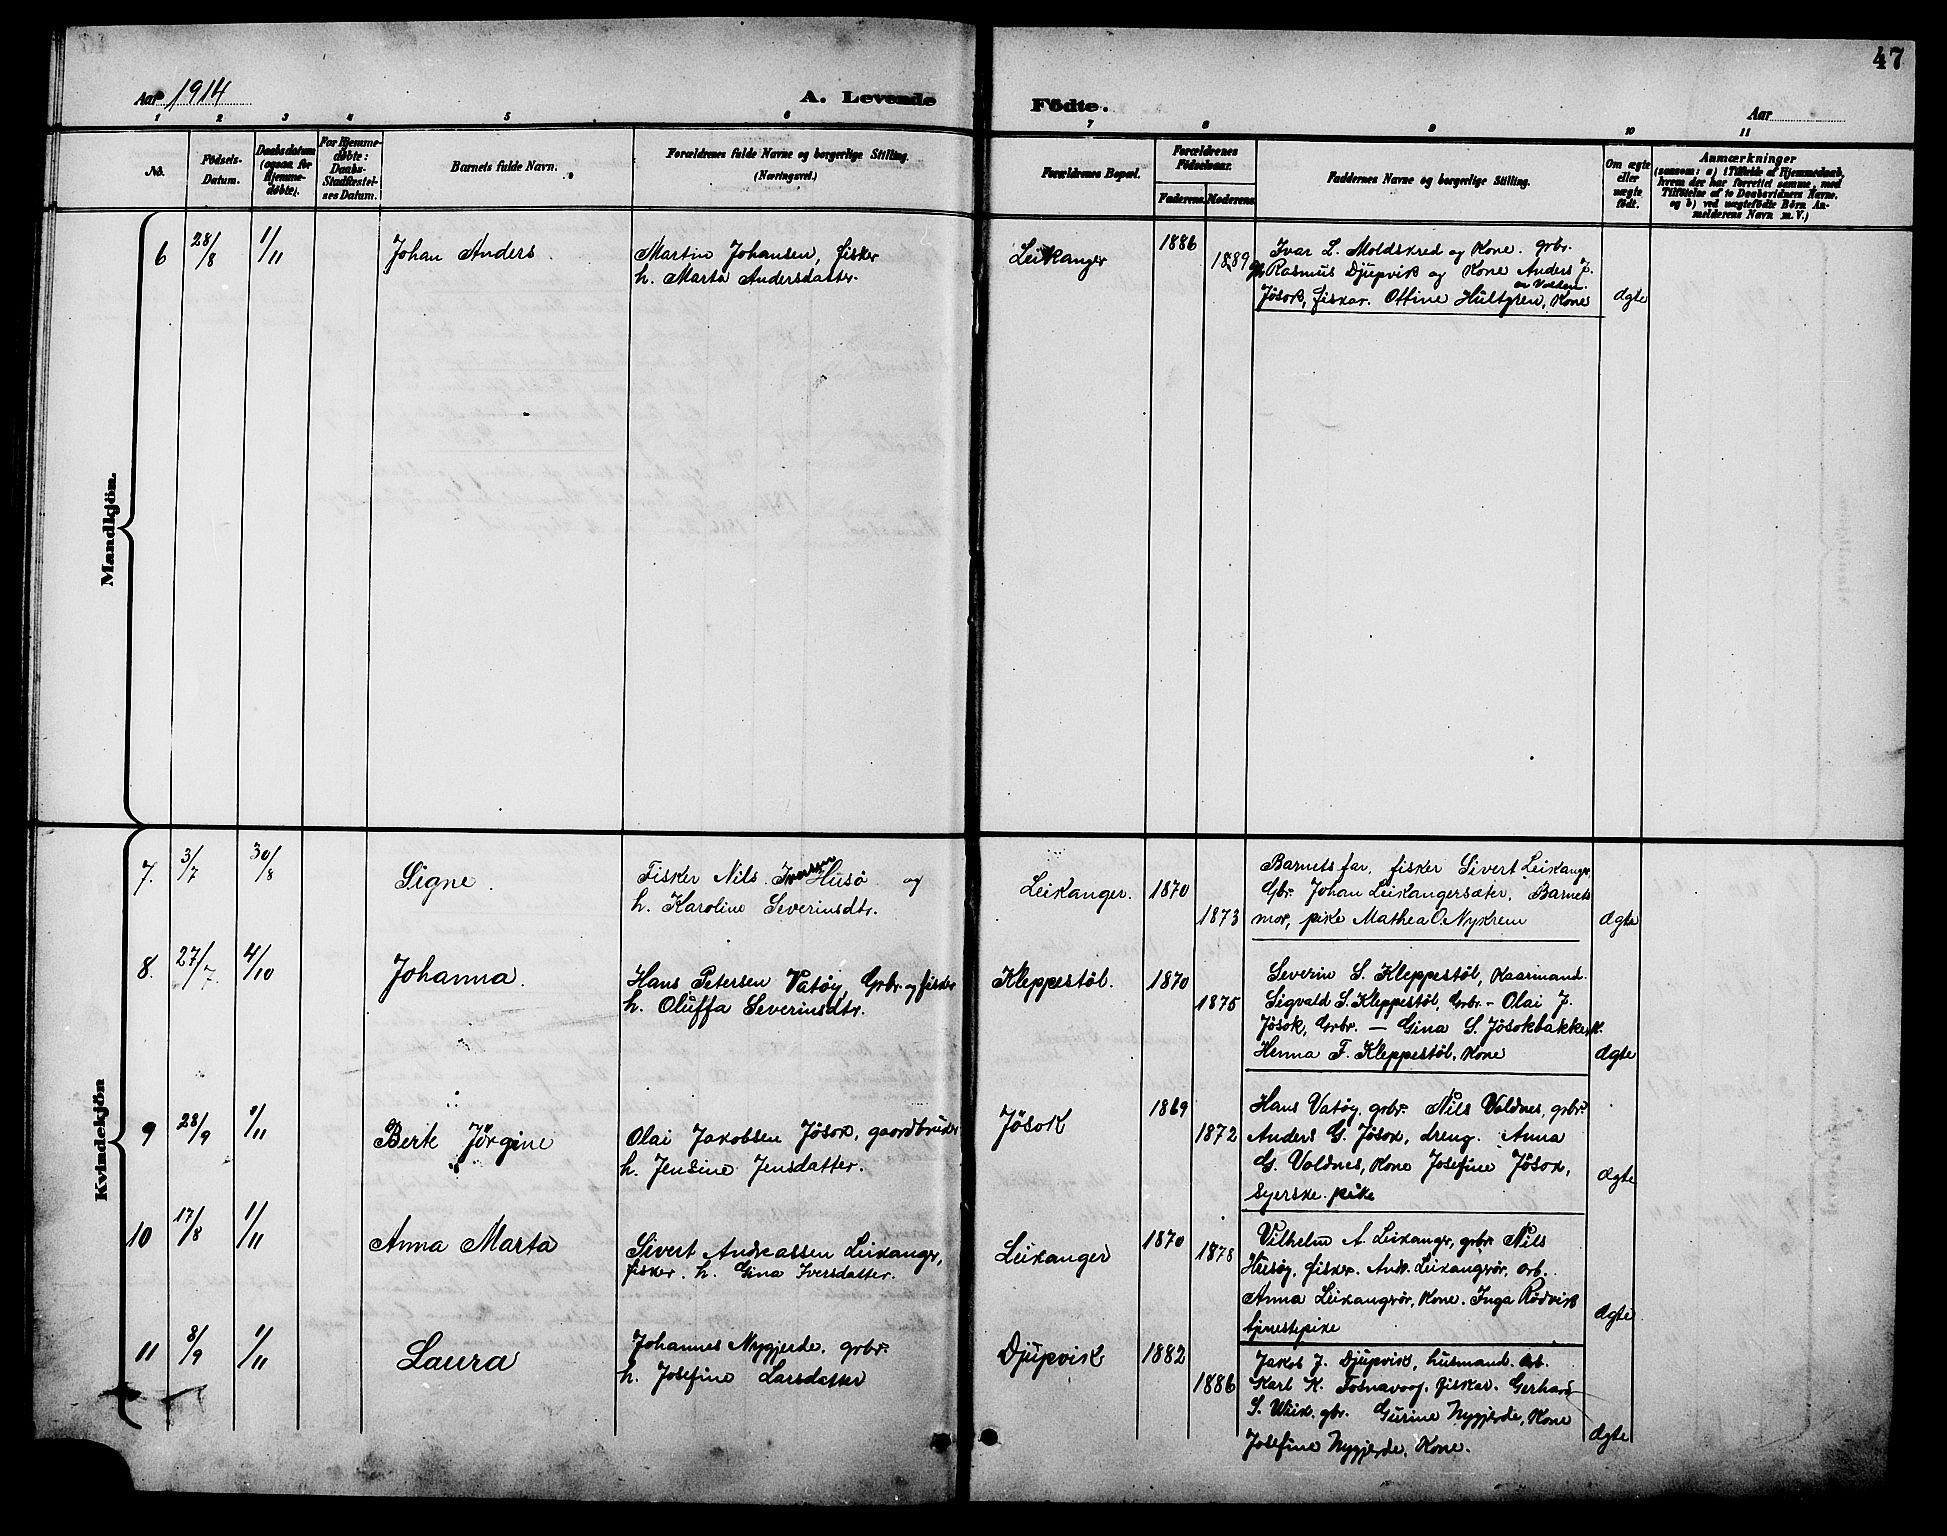 47
Aar 1914
A. Levende
Födte.
Aar
1 2 3 4 5 6 7 8 9 10 11
No.
Födsels-
Datum.
Daabsdatum
(ogsaa for
Hjemme-
døbte).
For Hjemme-
døbte:
Daabs-
Stadfæstel-
ses Datum.
Barnets fulde Navn.
Forældrenes fulde Navne og borgerlige Stilling.
(Næringsvei.)
Forældrenes Bopæl.
Forældrenes
Födselsaar.
Faderens. Moderens.
Faddernes Navne og borgerlige Stilling.
Om ægte
eller
uægte
født.
Anmærkninger
(saasom: a) i Tilfælde af Hjemmedaab,
hvem der har forrettet samme, med
Tilføielse af to Daabsvidners Navne,
og b) ved uægtefödte Börn An-
melderens Navn m. V.)
Mandkjön.
6 28/8 1/11 Johan Anders
Martin Johansen, fisker
h. Marta Andersdatter.
Leikanger 1886 1889
Ivar L. Moldskred og Kone. grbr.
Rasmus Djupvik og Kone Anders J.
Jösok, fisker. Ottine Hultgren, Kone
ægte
Kvindekjön
7. 3/7 30/8 Signe.
Fisker Nils Iversen Husö og
h. Karoline Severinsdtr.
Leikanger. 1870 1873
Barnets far, fisker Sivert Leikangr,
Gbr. Johan Leikangersæter, Barnets
mor, pike Mathea O. Nykrem
ægte
8. 27/7. 4/10 Johanna.
Hans Petersen Vatöy, Grbr. og fisker
h. Oluffa Severinsdtr.
Kleppestöl. 1870 1875
Severin S. Kleppestöl, Kaarmand.
Sigvald S. Kleppestöl, Grbr. - Olai J.
Jösok, Grbr. — Gina S. Jösokbakke, K.
Henna F. Kleppestöl, Kone
ægte
9 28/9 1/11 Berte Jörgine
Olai Jakobsen Jösok, gaardbruker
h. Jensine Jensdatter.
Jösok 1869 1872
Hans Vatöy, grbr. Nils Voldnes, grbr.
Anders G. Jösok, dreng. Anna
G. Voldnes, Kone Josefine Jösok,
syerske. pike
ægte
10 17/8 1/11 Anna Marta
Sivert Andreassen Leikangr,
fisker. h. Gina Iversdatter.
Leikanger 1870 1878
Vilhelm A. Leikangr, grbr. Nils
Husöy, fisker. Andr. Leikangrör, arb.
Anna Leikangrör, Kone. Inga Rödvik
tjenestepike
ægte
11 8/9 1/11 Laura
Johannes Nygjerde, grbr.
h. Josefine Larsdatter
Djupvik 1882 1886
Jakob J. Djupvik, husmand. arb.
Karl K. Fosnavaag, fisker. Gerhard
S. Wiik. gbr. Gurine Nygjerde, Kone
Josefine Nygjerde, Kone.
ægte